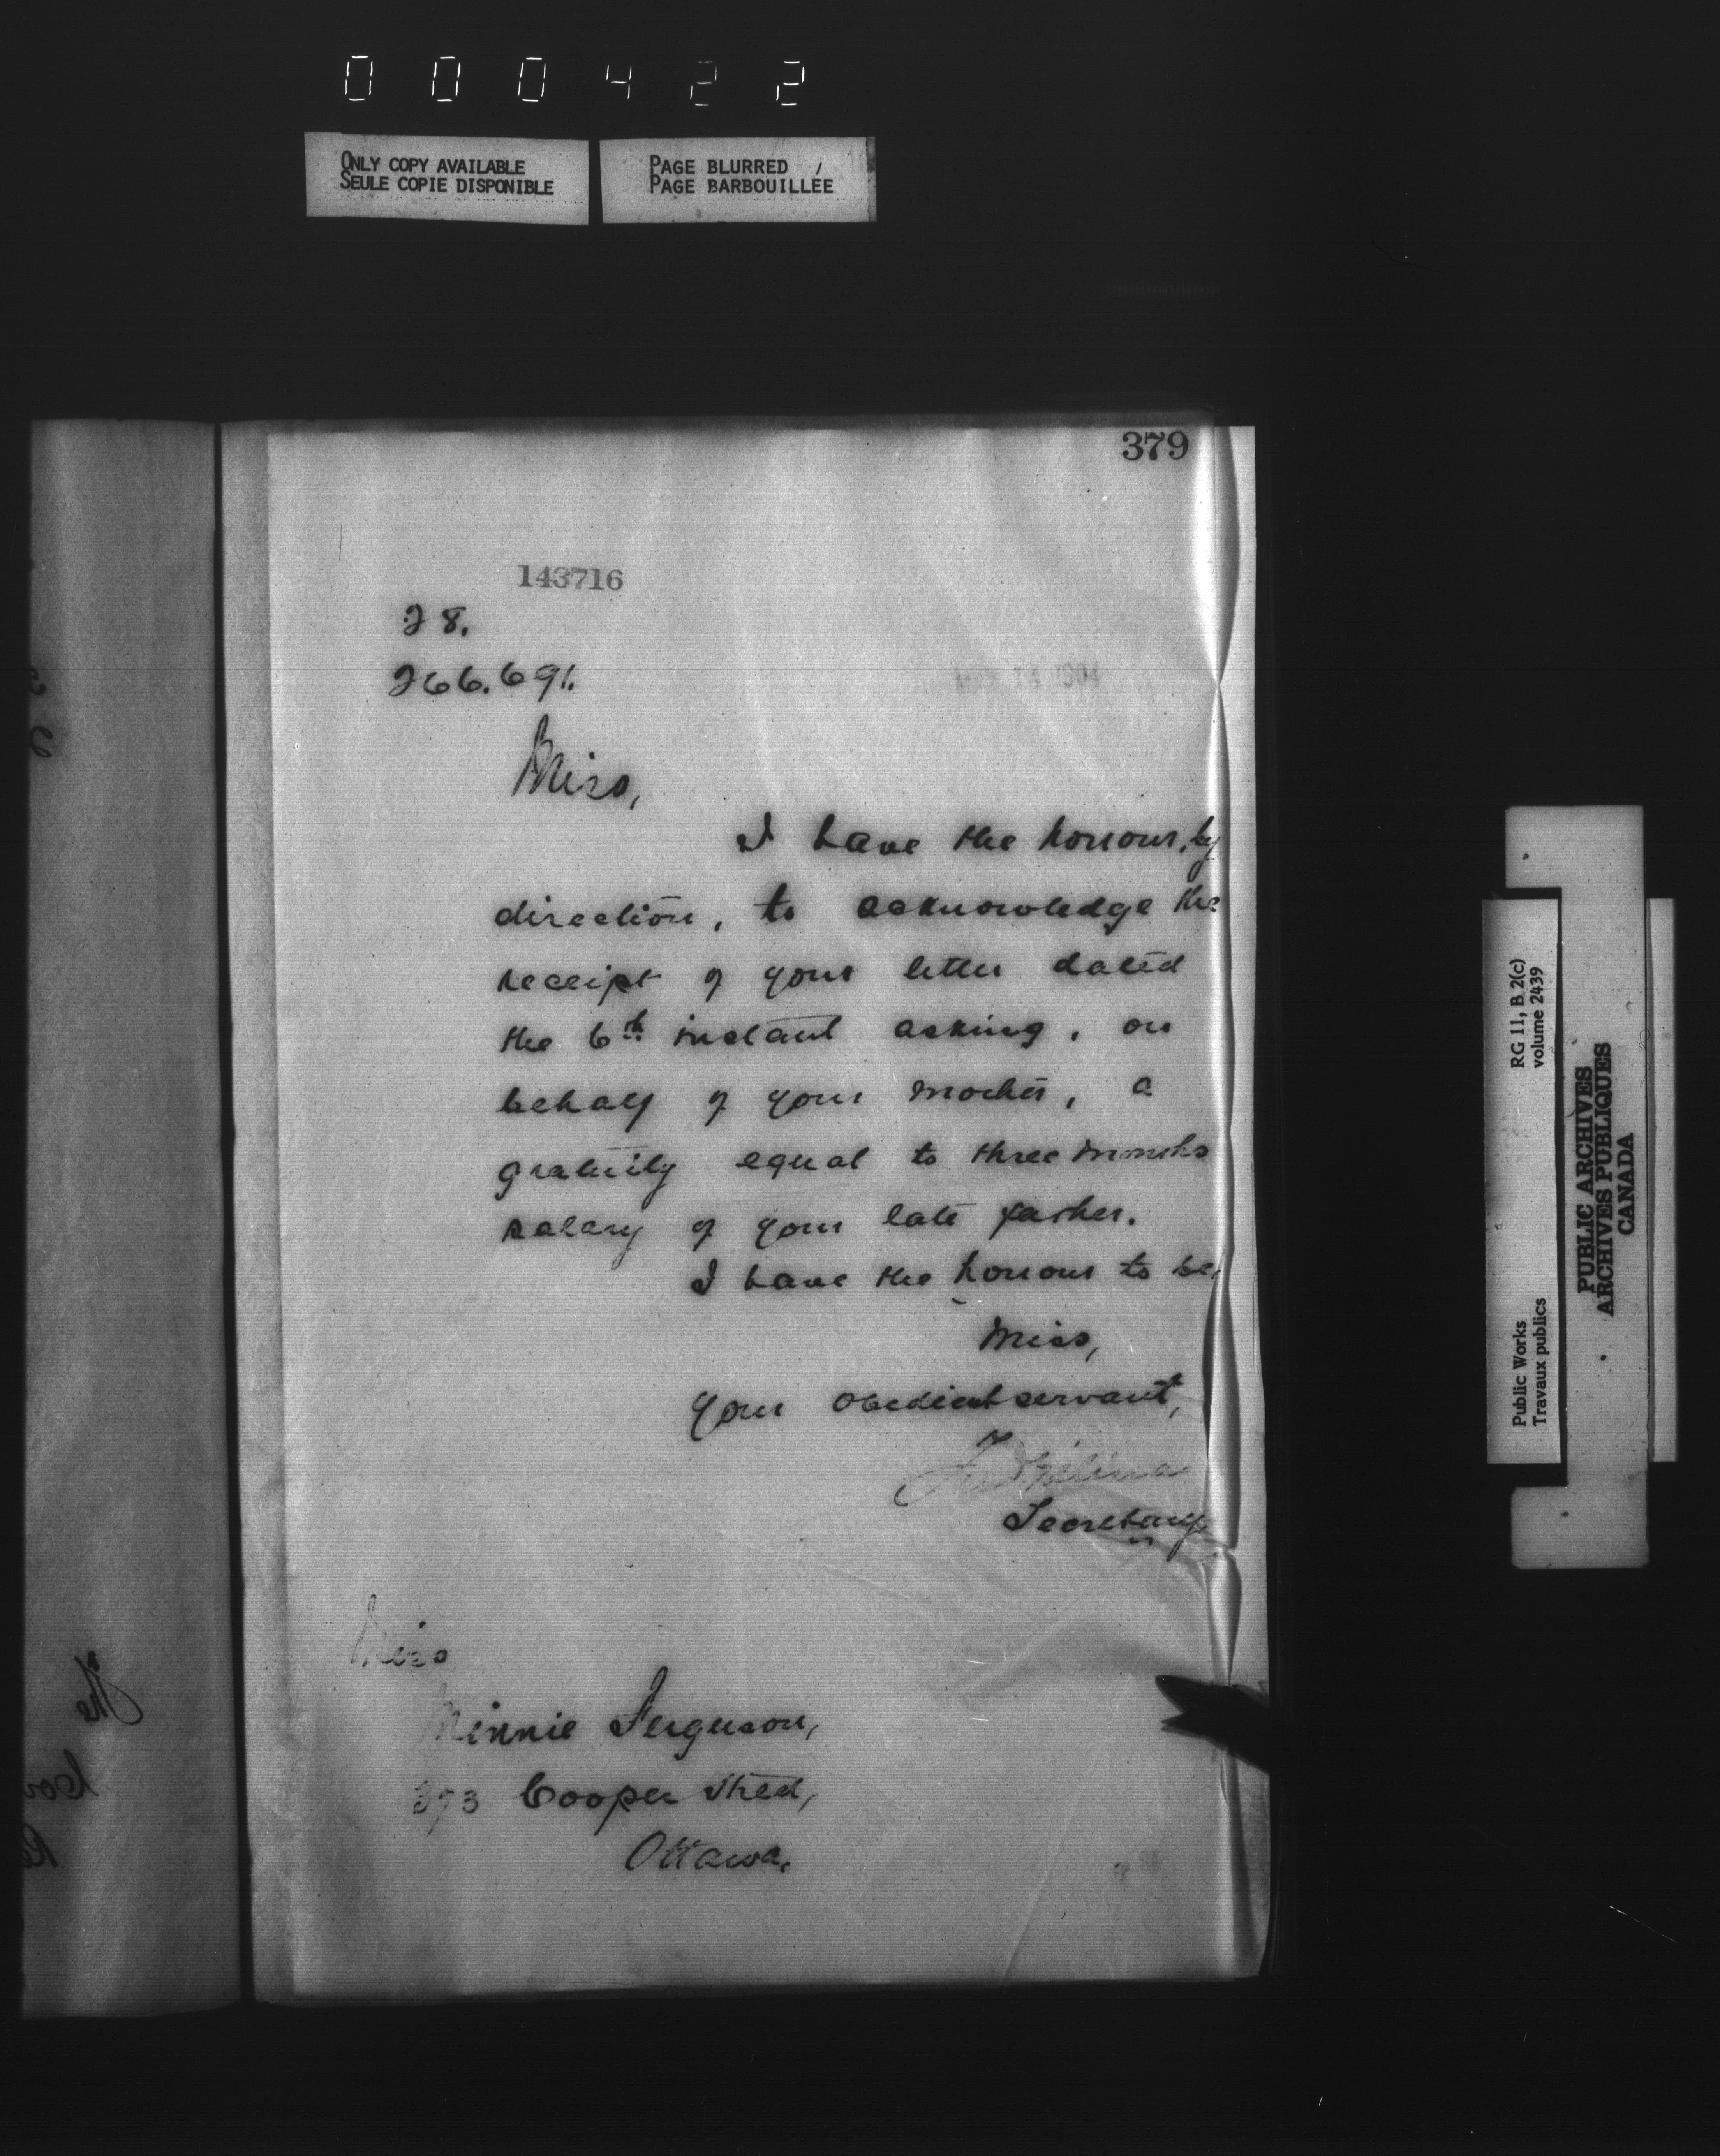 000422
ONLY COPY AVAILABLE
SEULE COPIE DISPONIBLE
PAGE BLURRED
PAGE BARBOUILLÉE
379
143716
28.
266.691.
14 1904
Miss,
I have the honour, by
direction, to acknowledge the
receipt of your letter dated
the 6th instant asking, on
behalf of your mother, a
gratuity equal to three months
salary of your late father.
I have the honour to be,
Miss,
Your obedient servant,
Secretary
Miss
Minnie Ferguson,
393 Cooper Street,
Ottawa.
The
RG 11, B 2(c)
volume 2439
Public Works
Travaux publics
PUBLIC ARCHIVES
ARCHIVES PUBLIQUES
CANADA